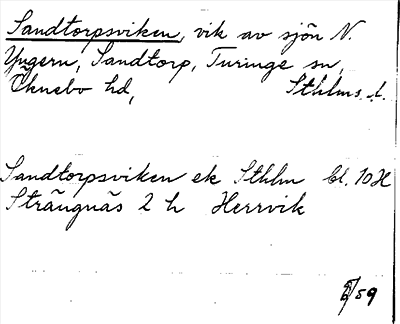 Sandtorpsviken, vik av sjön N.
Yngern, Sandtorp, Turinge sn,
Öknebo hd, Sthlms l.
Sandtorpsviken ek Sthlm bl. 10 H
Strängnäs 2 h Herrvik
/59